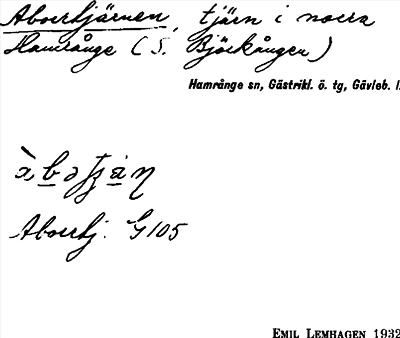 Aborrtjärnen, tjärn i norra
Hamrånge (S. Björkången)
Hamrånge sn, Gästrikl. ö. tg, Gävleb. l.
Aborrtj. G105
EMIL LEMHAGEN 1932